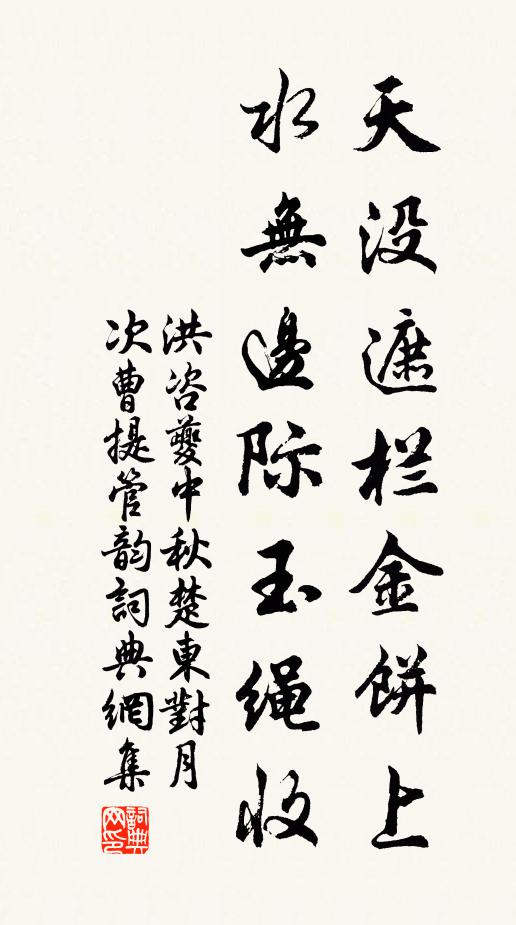 天没遮栏金餅上
水無邊际玉绳收
洪咨夔中秋楚東對月
次曹提管韵詞典網集
詞典网印